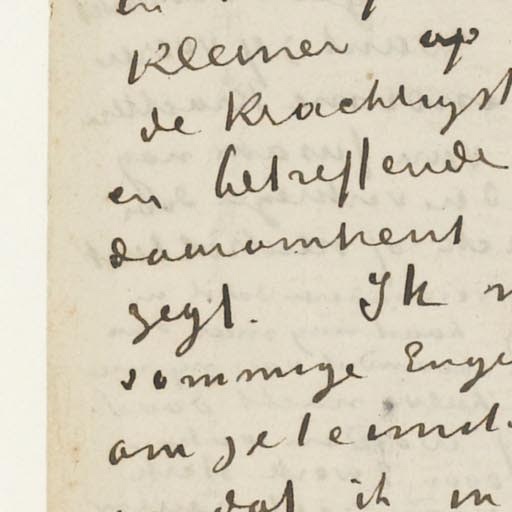 kleiner op
de krachtigst
en betreffende
daaromtrent
zegt. Ik
sommige Enge
om je te
dat ik